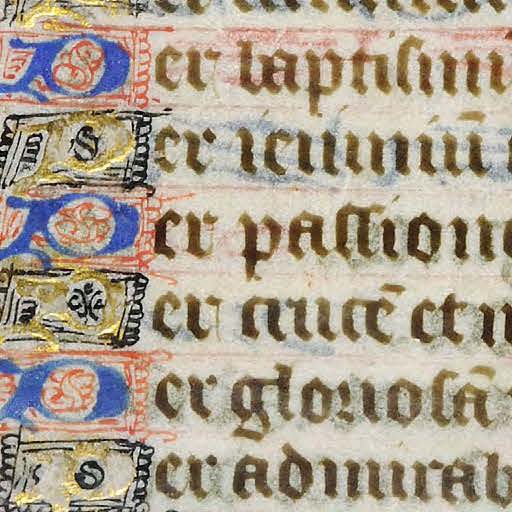 Per baptismu
Per ieiuniū
Per passione
Per crucē et
Per gloriosā
Per admirab